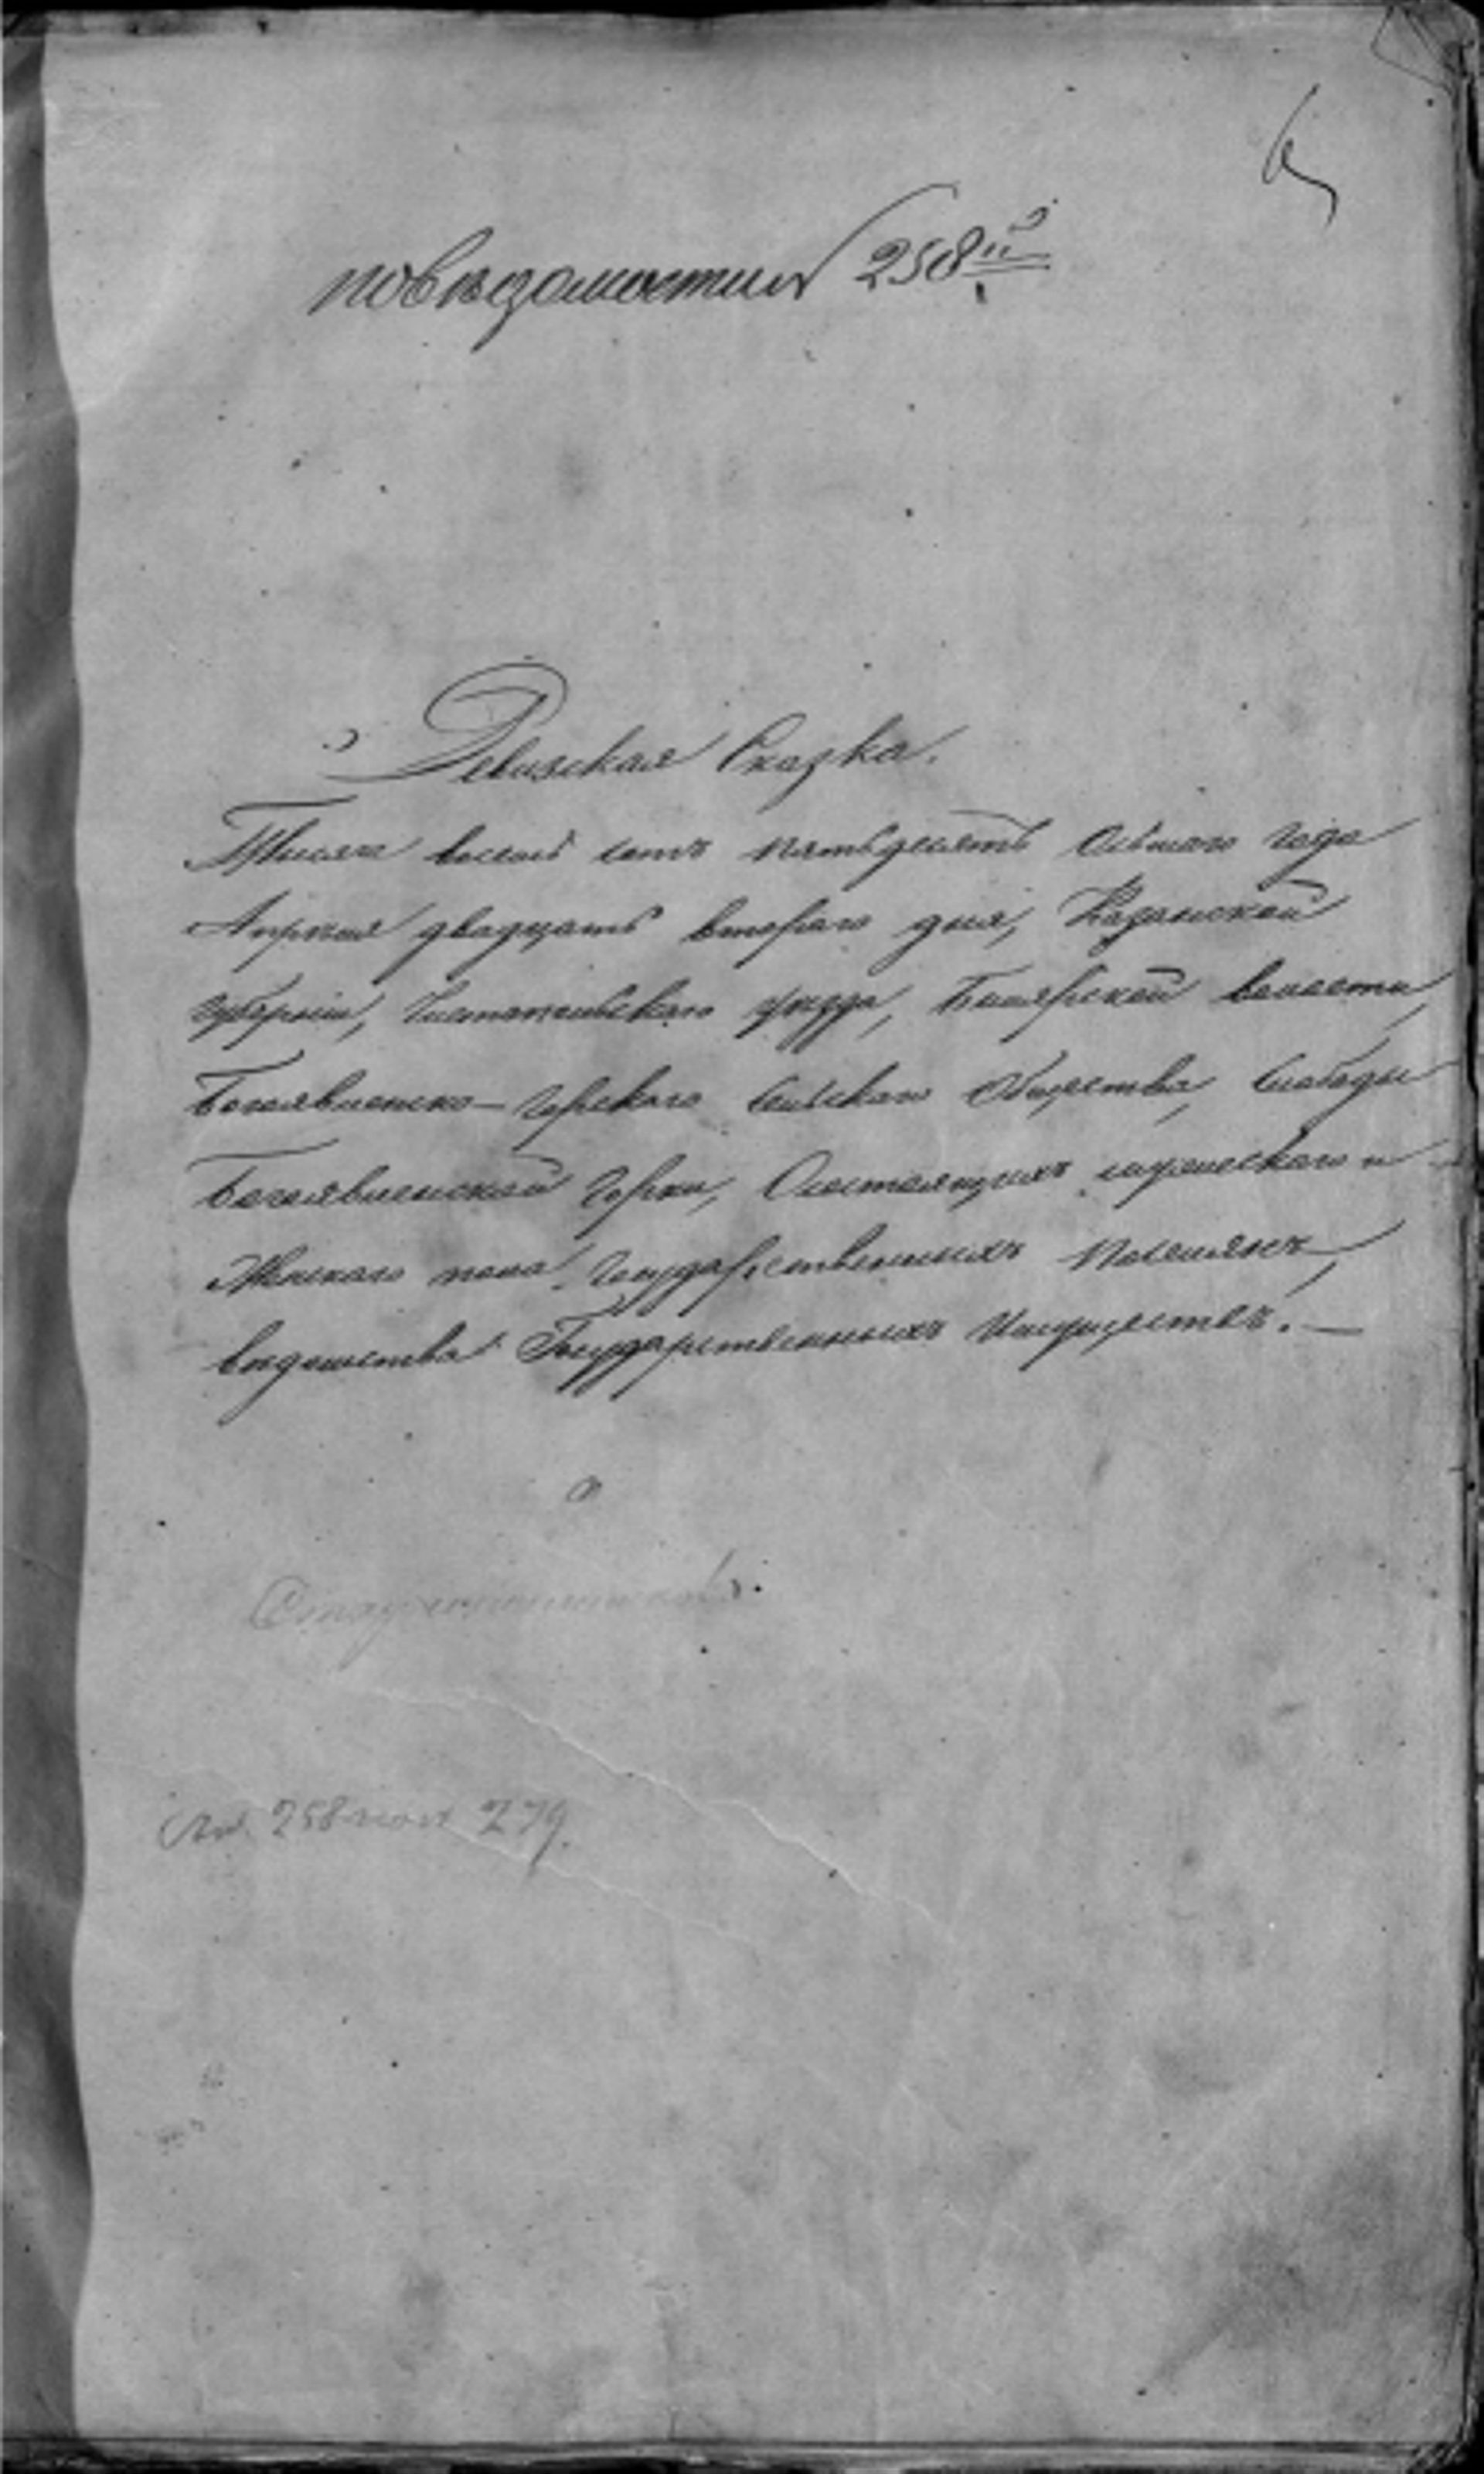 по вѣдомости 258й
Ревизская Сказка.
Тысяча восемь сотъ пятьдесятъ осьмаго года
Апрѣля двадцать втораго дня, Казанской
губерніи, Чистопольскаго уѣзда, Билярской волости,
Богоявленско-Горскаго сельскаго Общества, Слободы
Богоявленской Горки, О состоящихъ мужескаго и
Женскаго пола Государственныхъ поселянъ,
вѣдомства Государственныхъ Имуществъ.—
258 279.